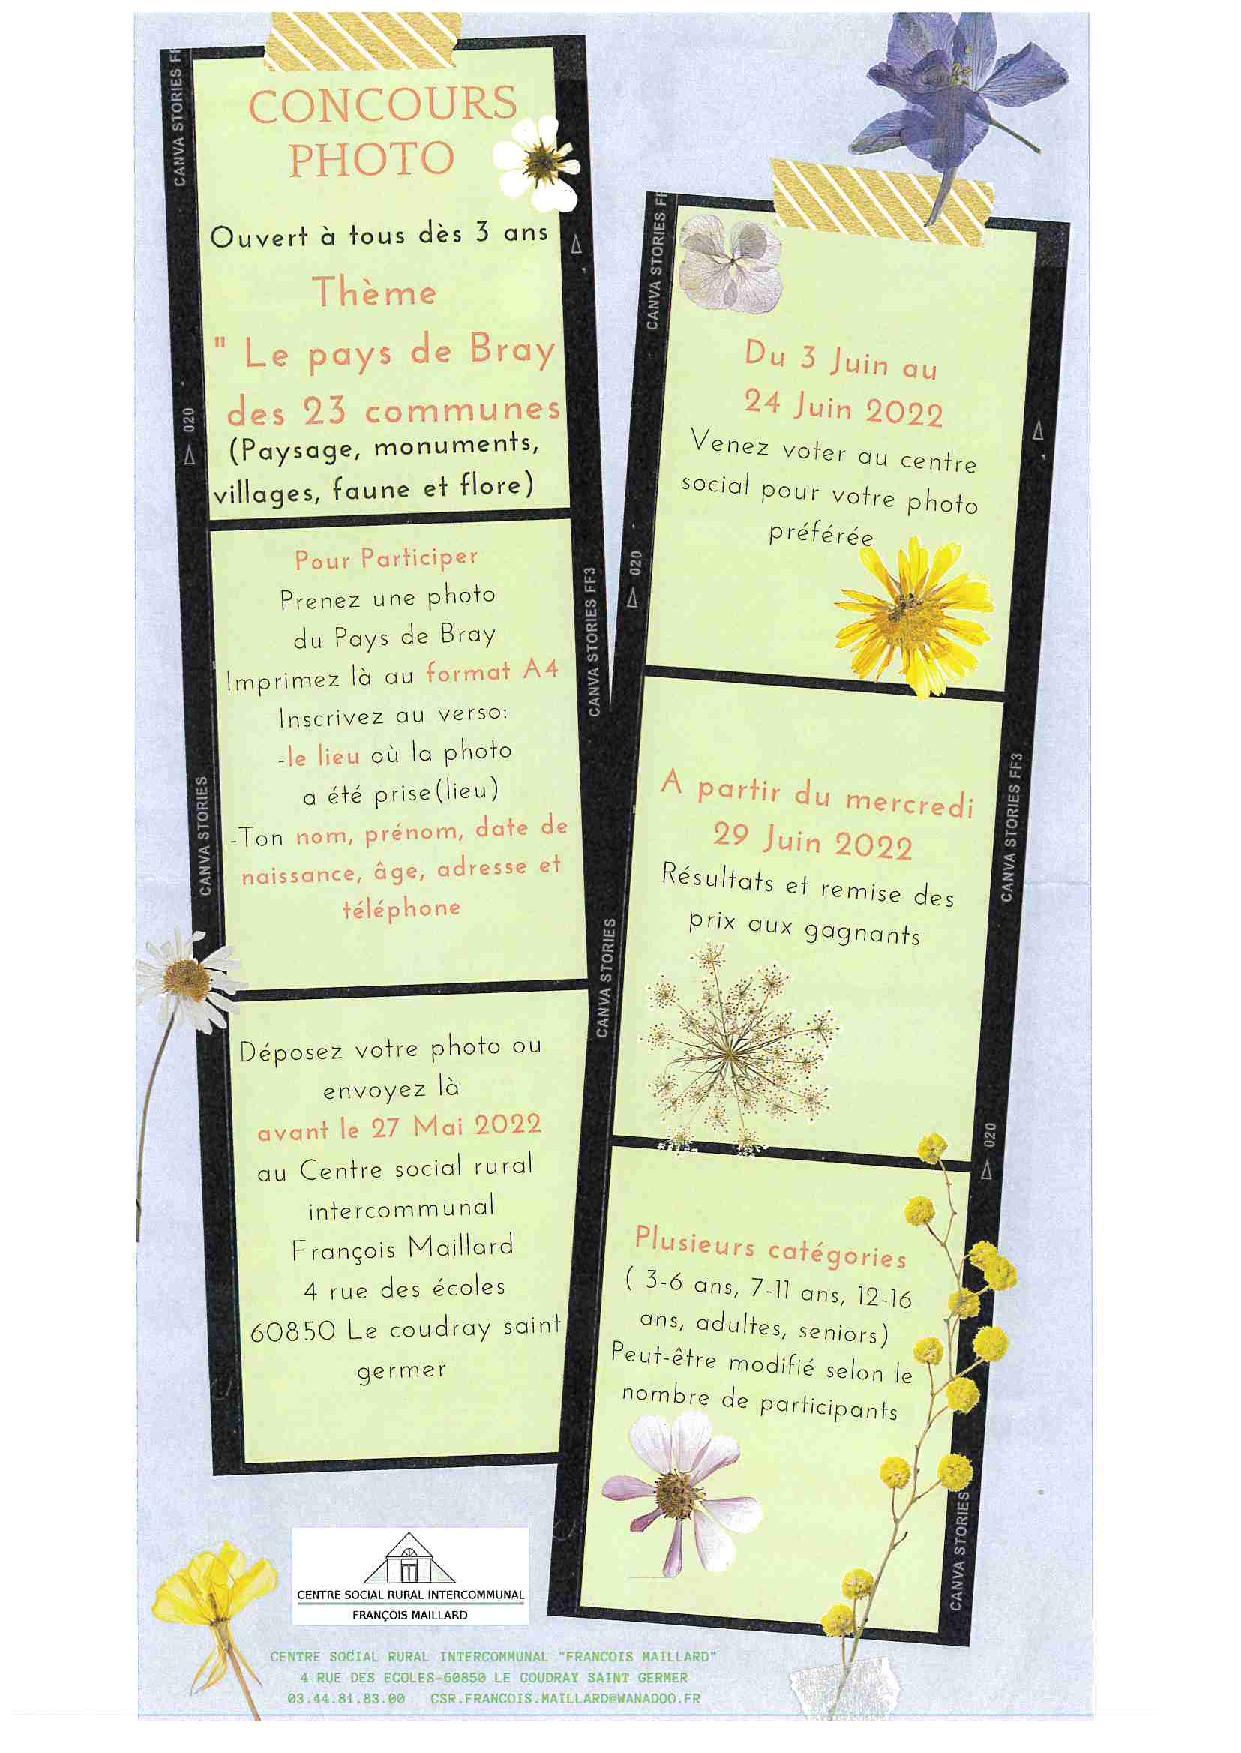 CONCOURS
PHOTO
Ouvert à tous dès 3 ans
Thème
" Le pays de Bray
des 23 communes
(Paysage, monuments,
villages, faune et flore)
Pour Participer
Prenez une photo
du Pays de Bray
Imprimez là au format A4
Inscrivez au verso:
-le lieu où la photo
a été prise(lieu)
-Ton nom, prénom, date de
naissance, âge, adresse et
téléphone
Déposez votre photo ou
envoyez là
avant le 27 Mai 2022
au Centre social rural
intercommunal
François Maillard
4 rue des écoles
60850 Le coudray saint
germer
Du 3 Juin au
24 Juin 2022
Venez voter au centre
social pour votre photo
préférée
A partir du mercredi
29 Juin 2022
Résultats et remise des
prix aux gagnants
Plusieurs catégories
( 3-6 ans, 7-11 ans, 12-16
ans, adultes, seniors)
Peut-être modifié selon le
nombre de participants
CANVA STORIES FF
020
CANVA STORIES
CANVA STORIES FF3
CANVA STORIES
CANVA STORIES FF
020
CANVA STORIES FF3
020
CANVA STORIES
CENTRE SOCIAL RURAL INTERCOMMUNAL
FRANÇOIS MAILLARD
CENTRE SOCIAL RURAL INTERCOMMUNAL "FRANCOIS MAILLARD"
4 RUE DES ECOLES-60850 LE COUDRAY SAINT GERMER
03.44.81.83.00 CSR.FRANCOIS.MAILLARD@WANADOO.FR